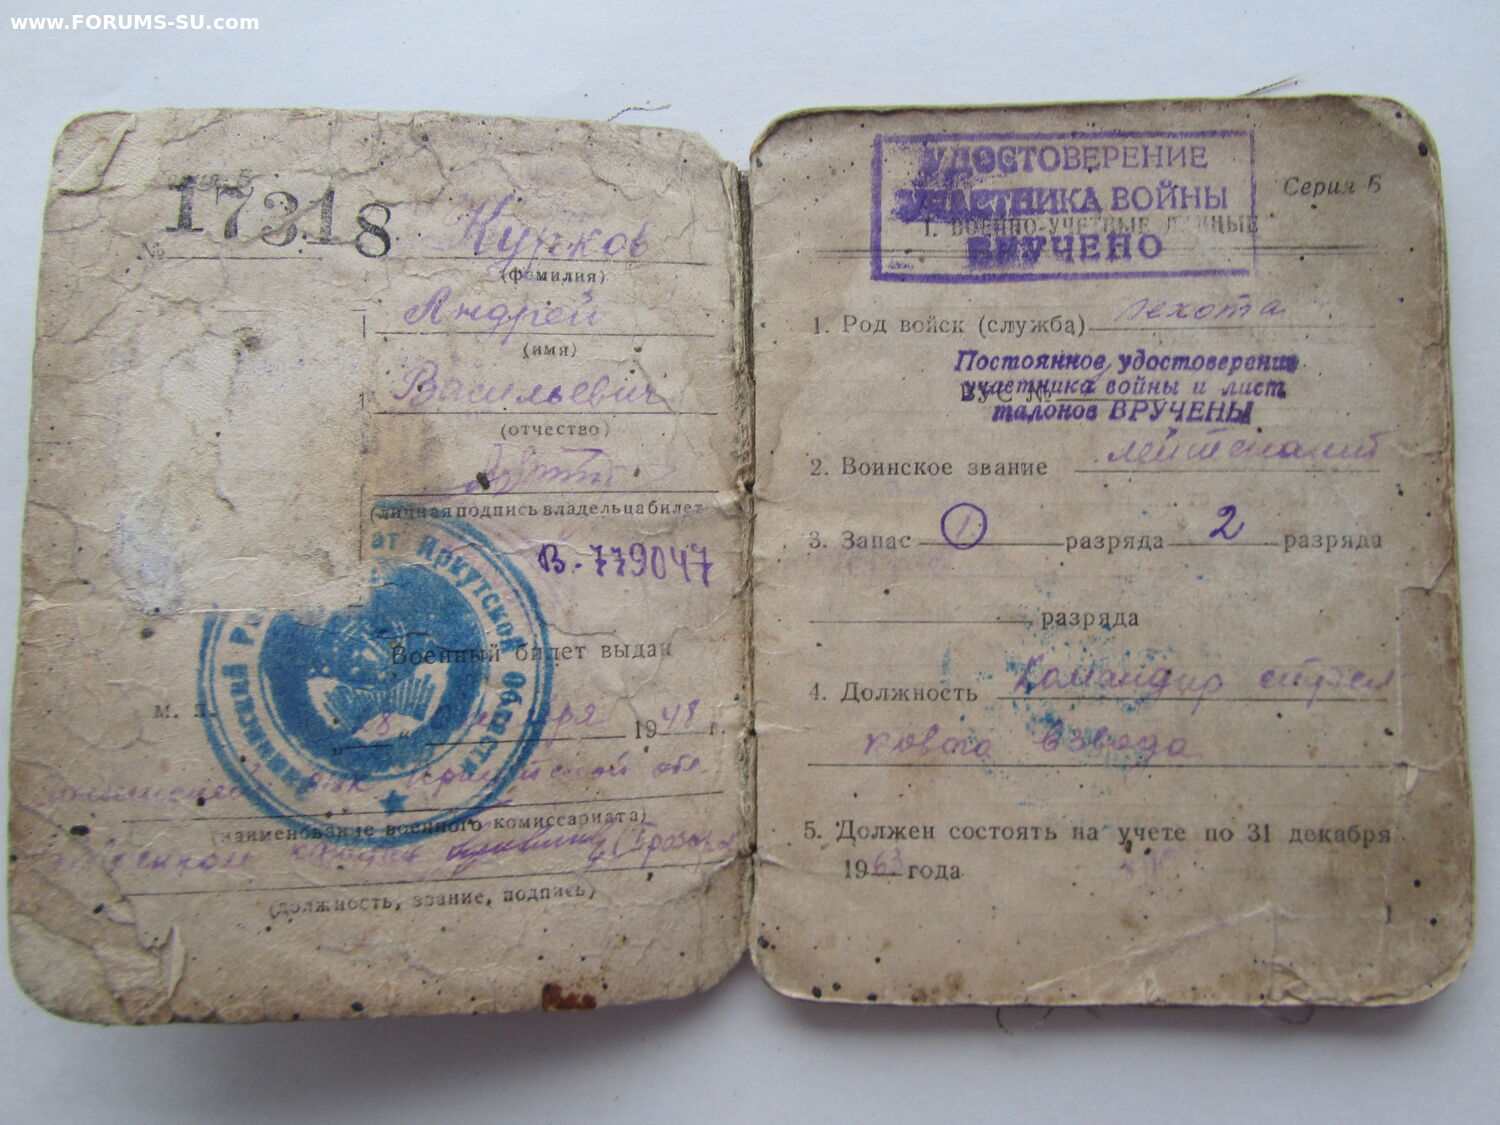 www.FORUMS-SU.com
Серия Б
№ 17318
Курков
(фамилия)
Андрей
(имя)
Васильевич
(отчество)
(личная подпись владельца билет
В-779047
ат Иркутской Области
Военный билет выдан
м. п.
„28“ 19 48 г.
рвк Иркутской обл.
(наименование военного комиссариата)
капитан
(должность, звание, подпись)
УДОСТОВЕРЕНИЕ
УЧАСТНИКА ВОЙНЫ
ВРУЧЕНО
Серия Б
I. ВОЕННО-УЧЕТНЫЕ ДАННЫЕ
1. Род войск (служба) пехота
Постоянное удостоверение
участника войны и лист
талонов ВРУЧЕНЫ
ВУС №
2. Воинское звание лейтенант
3. Запас 1 разряда 2 разряда
разряда
4. Должность Командир стрел
кового взвода
5. Должен состоять на учете по 31 декабря
1963 года